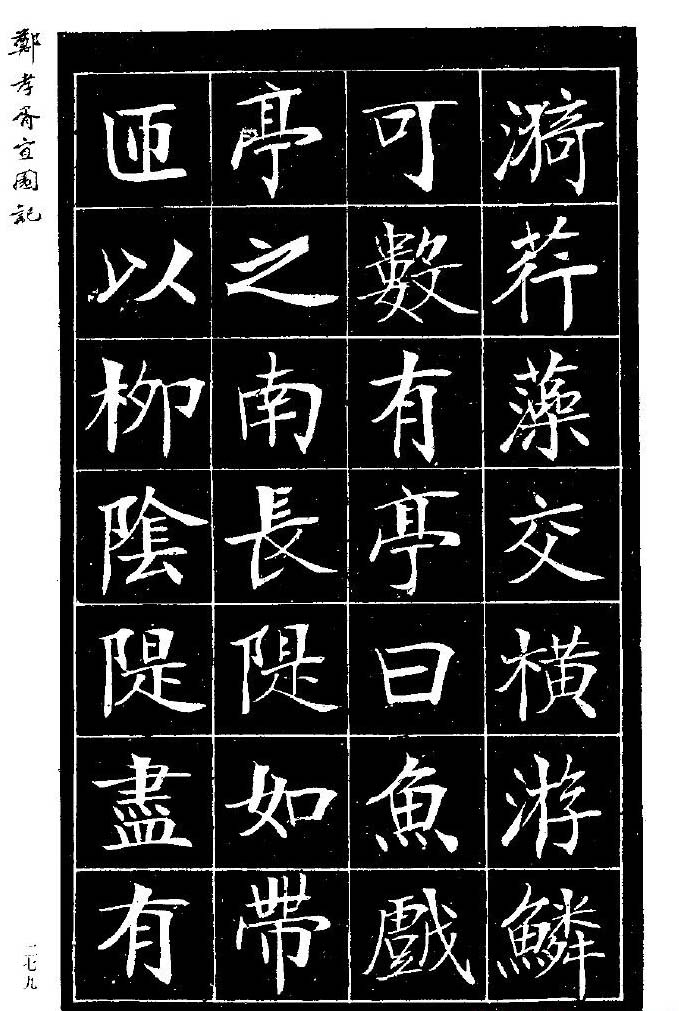 漪荇藻交橫游鱗
可數有亭曰魚戲
亭之南長隄如帶
匝以柳陰隄盡有
鄭孝胥宜園記
二七九